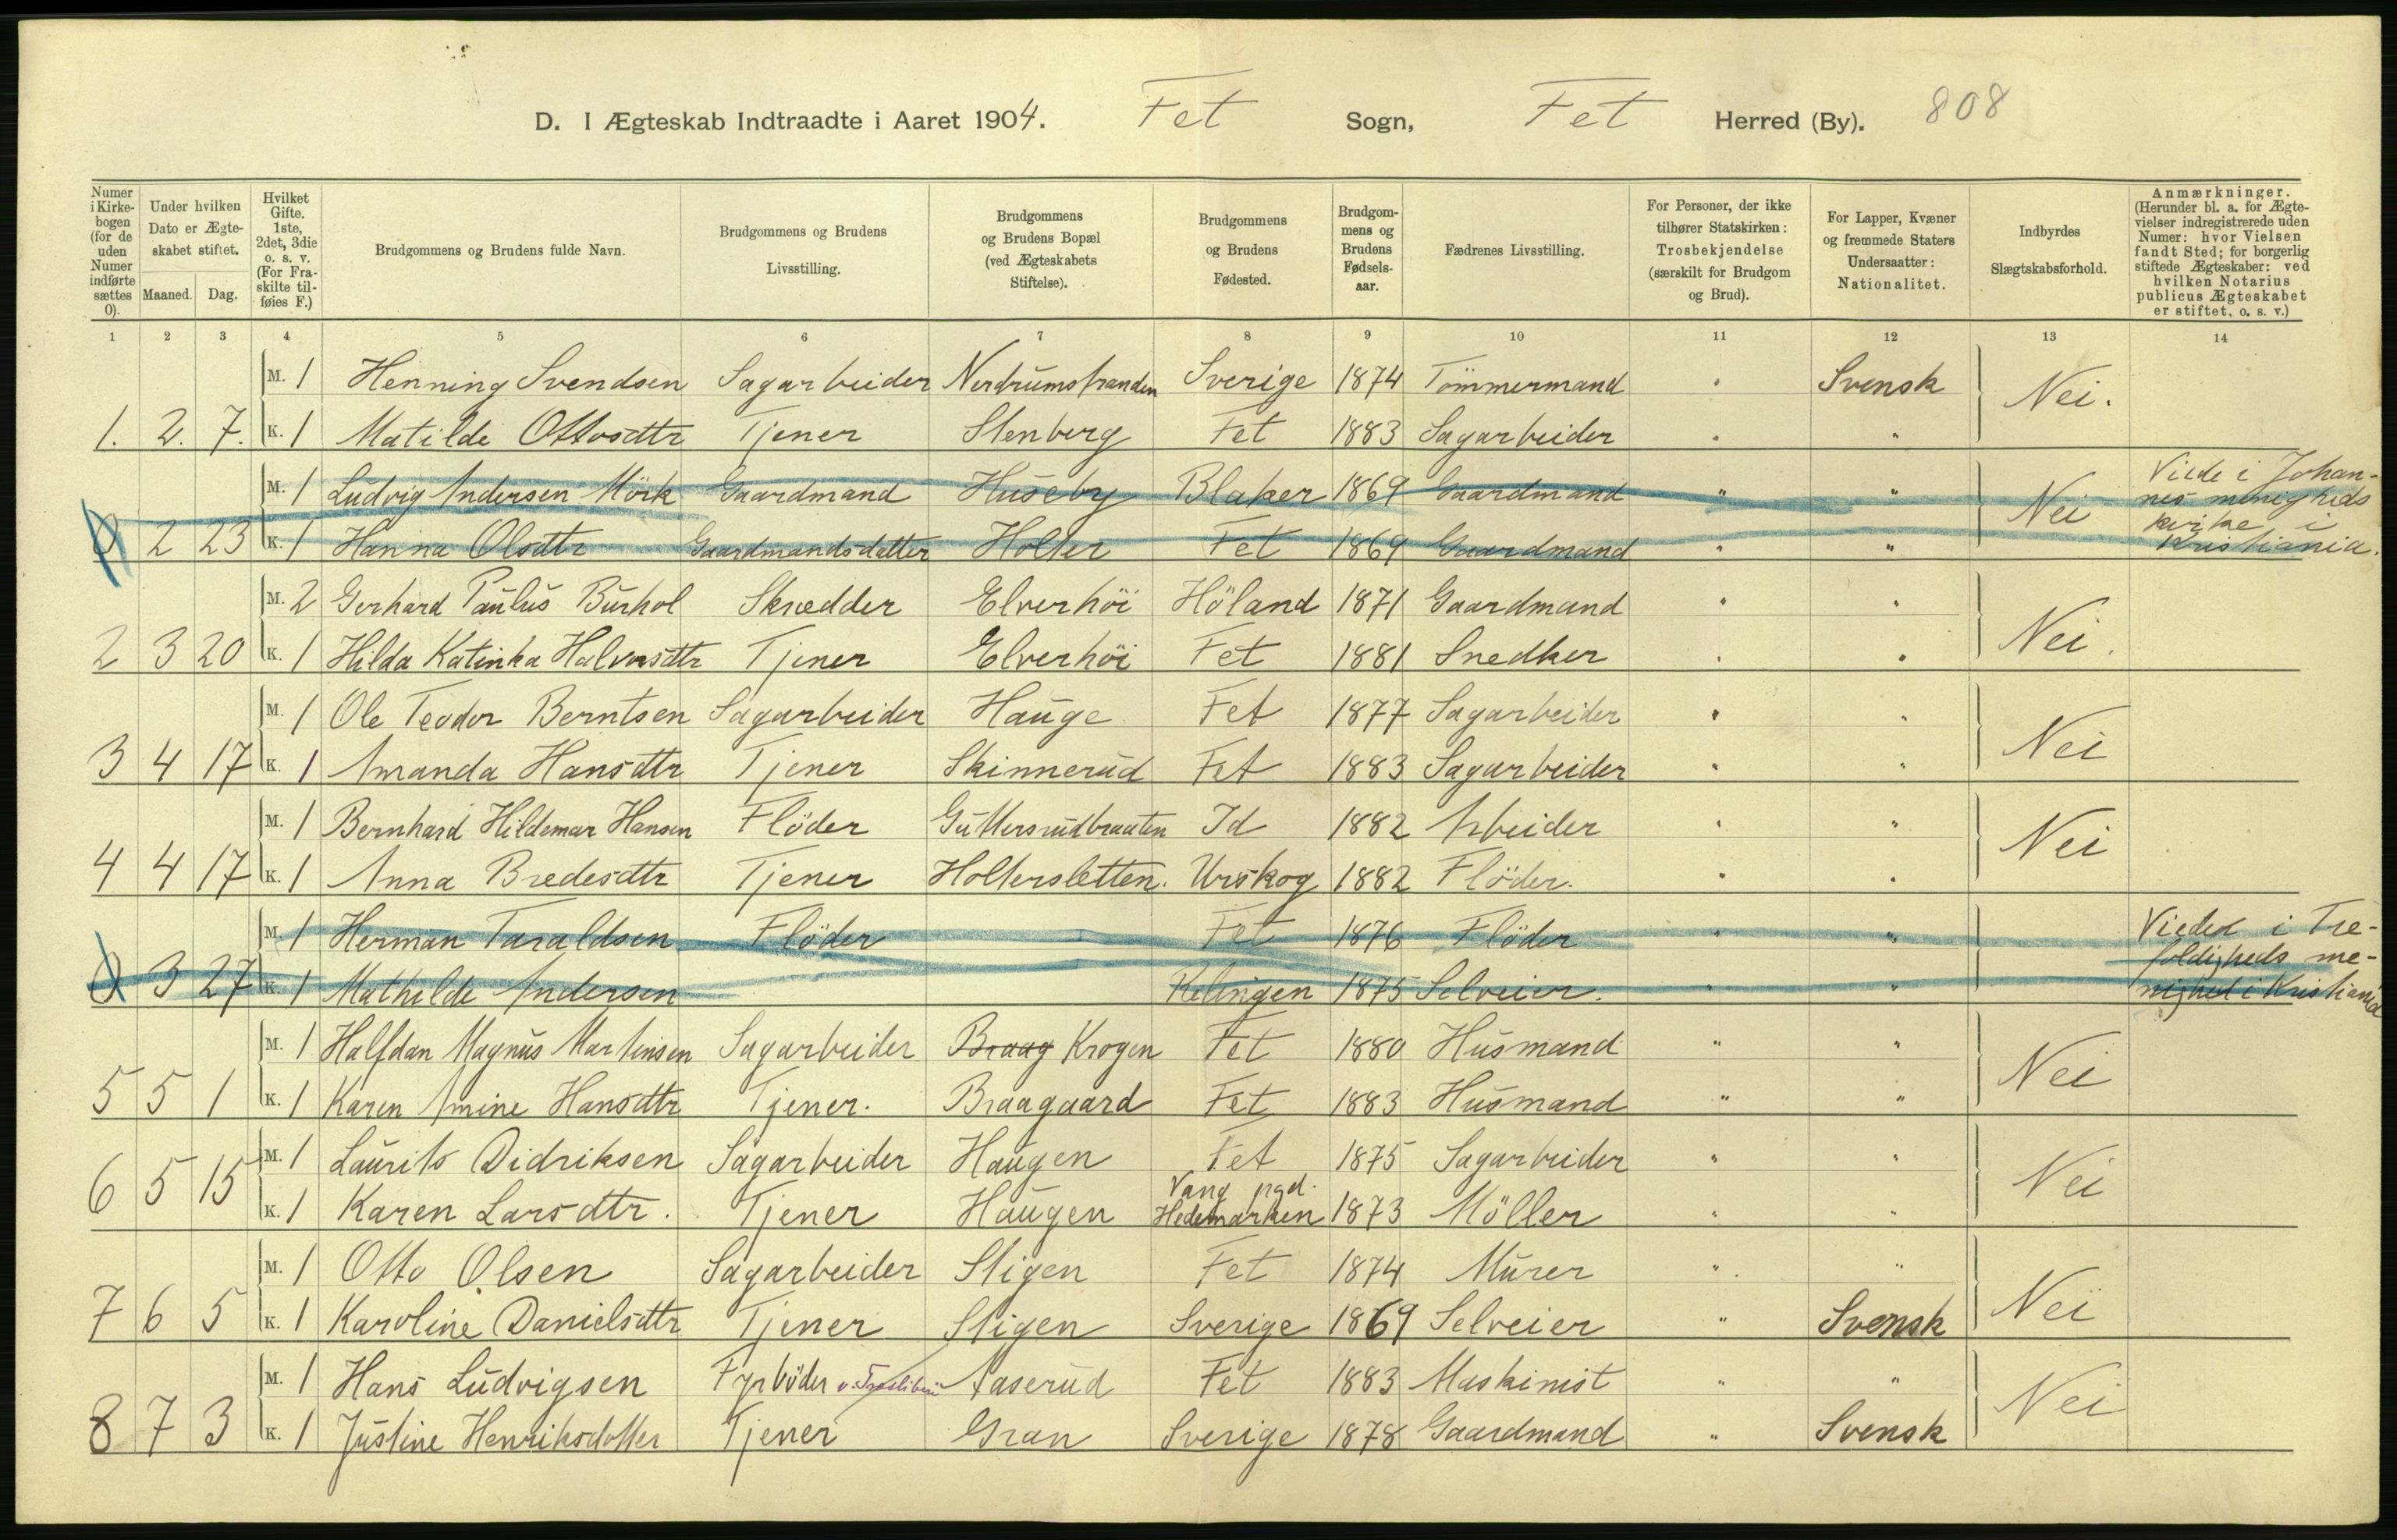 808
D. I Ægteskab Indtraadte i Aaret 1904. Fet Sogn, Fet Herred (By).
Numer i Kirkebogen (for de uden Numer indførte sættes 0).
Under hvilken Dato er Ægteskabet stiftet.
Maaned. Dag.
Hvilket Gifte. 1ste, 2det, 3die o. s. v. (For Fraskilte tilføies F.)
Brudgommens og Brudens fulde Navn.
Brudgommens og Brudens Livsstilling.
Brudgommens og Brudens Bopæl (ved Ægteskabets Stiftelse).
Brudgommens og Brudens Fødested.
Brudgommens og Brudens Fødselsaar.
Fædrenes Livsstilling.
For Personer, der ikke tilhører Statskirken: Trosbekjendelse (særskilt for Brudgom og Brud).
For Lapper, Kvæner og fremmede Staters Undersaatter: Nationalitet.
Indbyrdes Slægtskabsforhold.
Anmærkninger. (Herunder bl. a. for Ægtevielser indregistrerede uden Numer: hvor Vielsen fandt Sted; for borgerlig stiftede Ægteskaber: ved hvilken Notarius publicus Ægteskabet er stiftet, o. s. v.)
1 2 3 4 5 6 7 8 9 10 11 12 13 14
M. 1 Henning Svendsen Sagarbeider Nerdrumstranden Sverige 1874 Tömmermand " Svensk
1. 2. 7. K. 1 Matilde Ottosdtr Tjener Stenberg Fet 1883 Sagarbeider " " Nei.
M. 1 Ludvig Andersen Mörk Gaardmand Huseby Blaker 1869 Gaardmand " " Viede i Johannes menigheds
0 2 23 K. 1 Hanna Olsdtr Gaardmandsdatter Holter Fet 1869 Gaardmand " " Nei kirke i Kristiania.
M. 2 Gerhard Paulus Burhol Skrædder Elverhöi Höland 1871 Gaardmand " "
2 3 20 K. 1 Hilda Katinka Halvorsdtr Tjener Elverhöi Fet 1881 Snedker " " Nei.
M. 1 Ole Teodor Berntsen Sagarbeider Hauge Fet 1877 Sagarbeider " "
3 4 17 K. 1 Amanda Hansdtr Tjener Skinnerud Fet 1883 Sagarbeider " " Nei
M. 1 Bernhard Hildemar Hansen Flöder Guttersrudbraaten Id 1882 Arbeider " "
4 4 17 K. 1 Anna Bredesdtr Tjener Holtersletten. Urskog 1882 Flöder. " " Nei
M. 1 Herman Taraldsen Flöder Fet 1876 Flöder " " Viede i Trefoldigheds me-
0 3 27 K. 1 Mathilde Andersen Relingen 1875 Selveier. " " nighed i Kristiania
M. 1 Halfdan Magnus Martinsen Sagarbeider Braag Krogen Fet 1880 Husmand " "
5 5 1 K. 1 Karen Amine Hansdtr Tjener. Braagaard Fet 1883 Husmand " " Nei
M. 1 Laurits Didriksen Sagarbeider Haugen Fet 1875 Sagarbeider " "
6 5 15 K. 1 Karen Larsdtr. Tjener Haugen Vang pgd. Hedemarken 1873 Möller " " Nei
M. 1 Otto Olsen Sagarbeider Stigen Fet 1874 Murer " "
7 6 5 K. 1 Karoline Danielsdtr Tjener Stigen Sverige 1869 Selveier " Svensk Nei
M. 1 Hans Ludvigsen Fyrböder Aaserud Fet 1883 Maskinist " "
8 7 3 K. 1 Justine Henriksdotter Tjener Gran Sverige 1878 Gaardmand " Svensk Nei